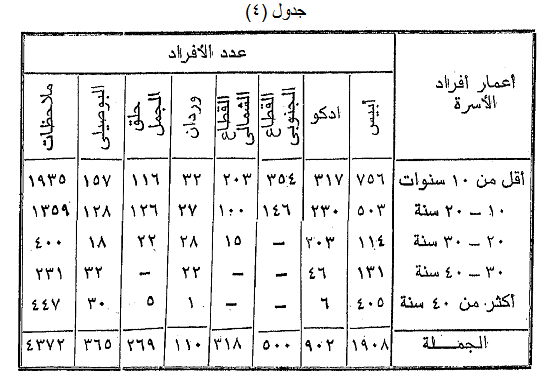 جدول (٤)
أعمار أفراد الأسرة
عدد الأفراد
أبيس
ادكو
القطاع الجنوبى
القطاع الشمالى
وردان
حلق الجمل
البوصيلى
ملاحظات
أقل من ١٠ سنوات ٧٥٦ ٣١٧ ٣٥٤ ٢٠٣ ٣٢ ١١٦ ١٥٧ ١٩٣٥
١٠ – ٢٠ سنة ٥٠٣ ٢٣٠ ١٤٦ ١٠٠ ٢٧ ١٢٦ ١٢٨ ١٣٥٩
٢٠ – ٣٠ سنة ١١٤ ٣٠٣ – ١٥ ٢٨ ٢٢ ١٨ ٤٠٠
٣٠ – ٤٠ سنة ١٣١ ٤٦ – – ٢٢ – ٣٢ ٢٣١
أكثر من ٤٠ سنة ٤٠٥ ٦ – – ١ ٥ ٣٠ ٤٤٧
الجمــلة ١٩٠٨ ٩٠٢ ٥٠٠ ٣١٨ ١١٠ ٢٦٩ ٣٦٥ ٤٣٧٢